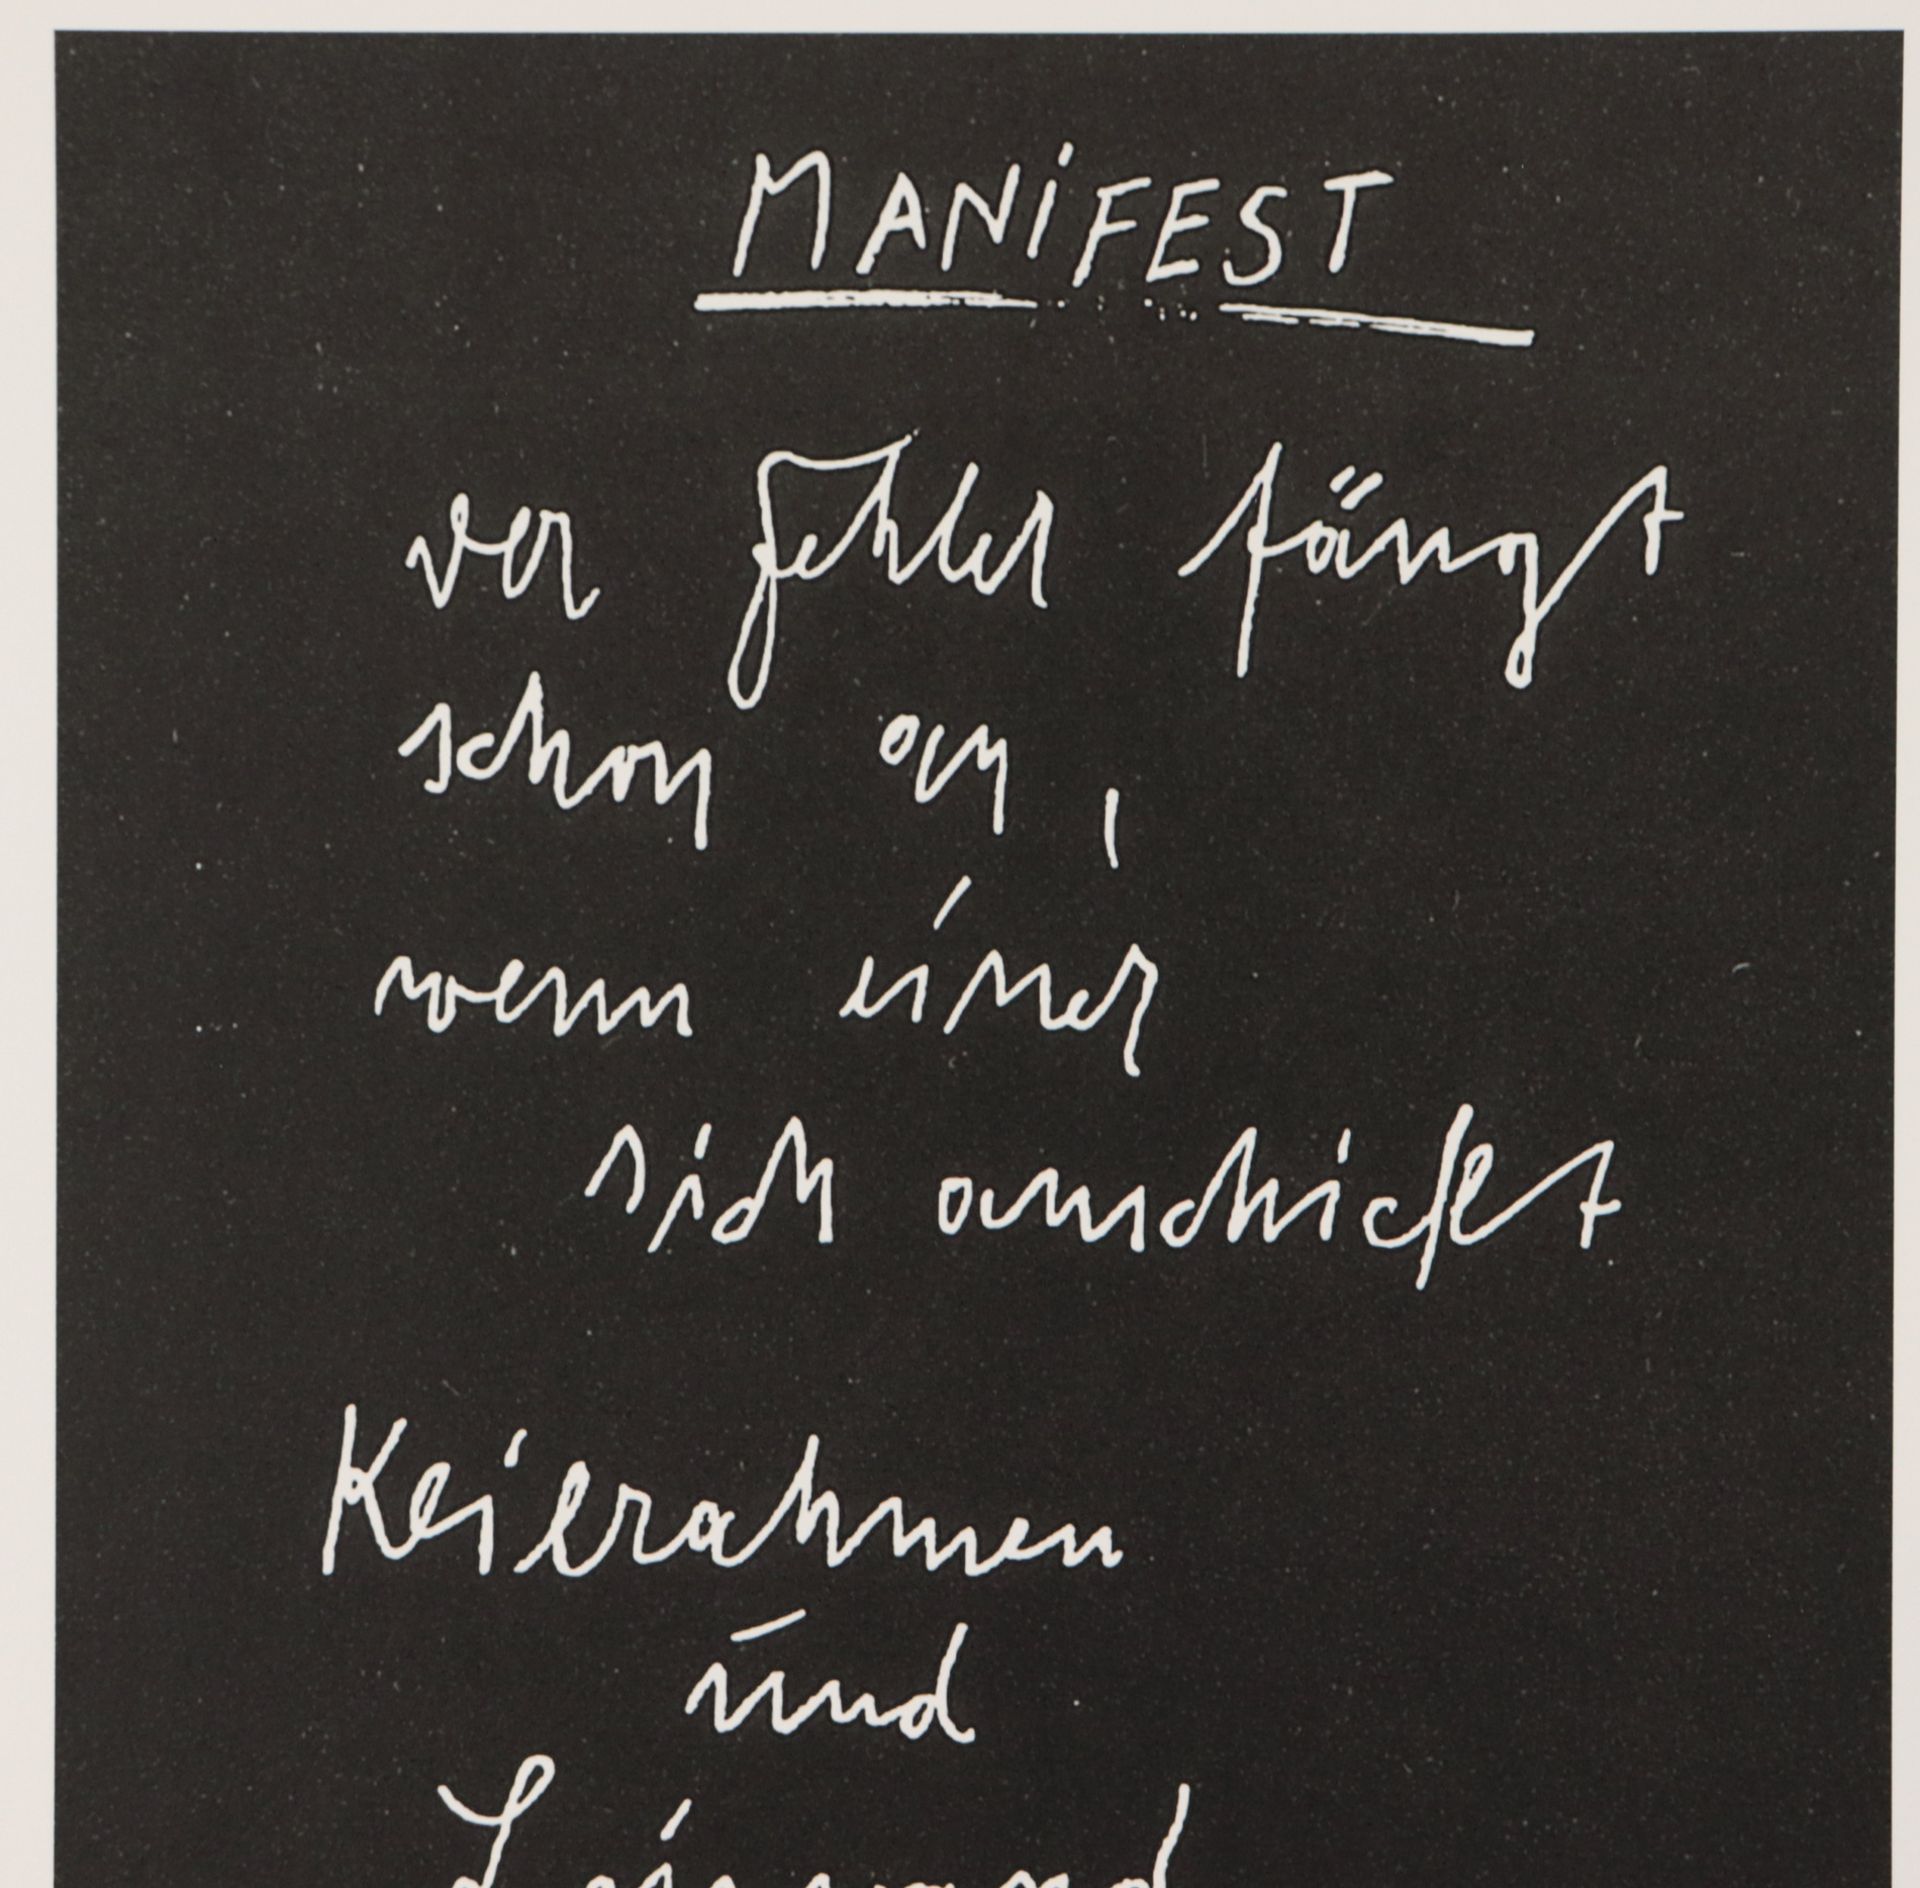 MANiFEST
der Fehler fängt
schon an,
wenn einer
sich anschickt
Keilrahmen
und
Leinwand